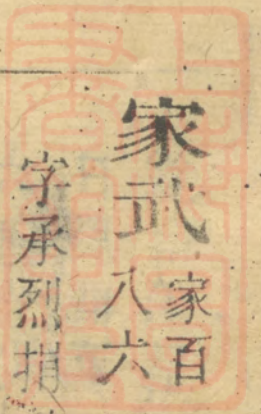 家武
家百
八六
字承烈捐